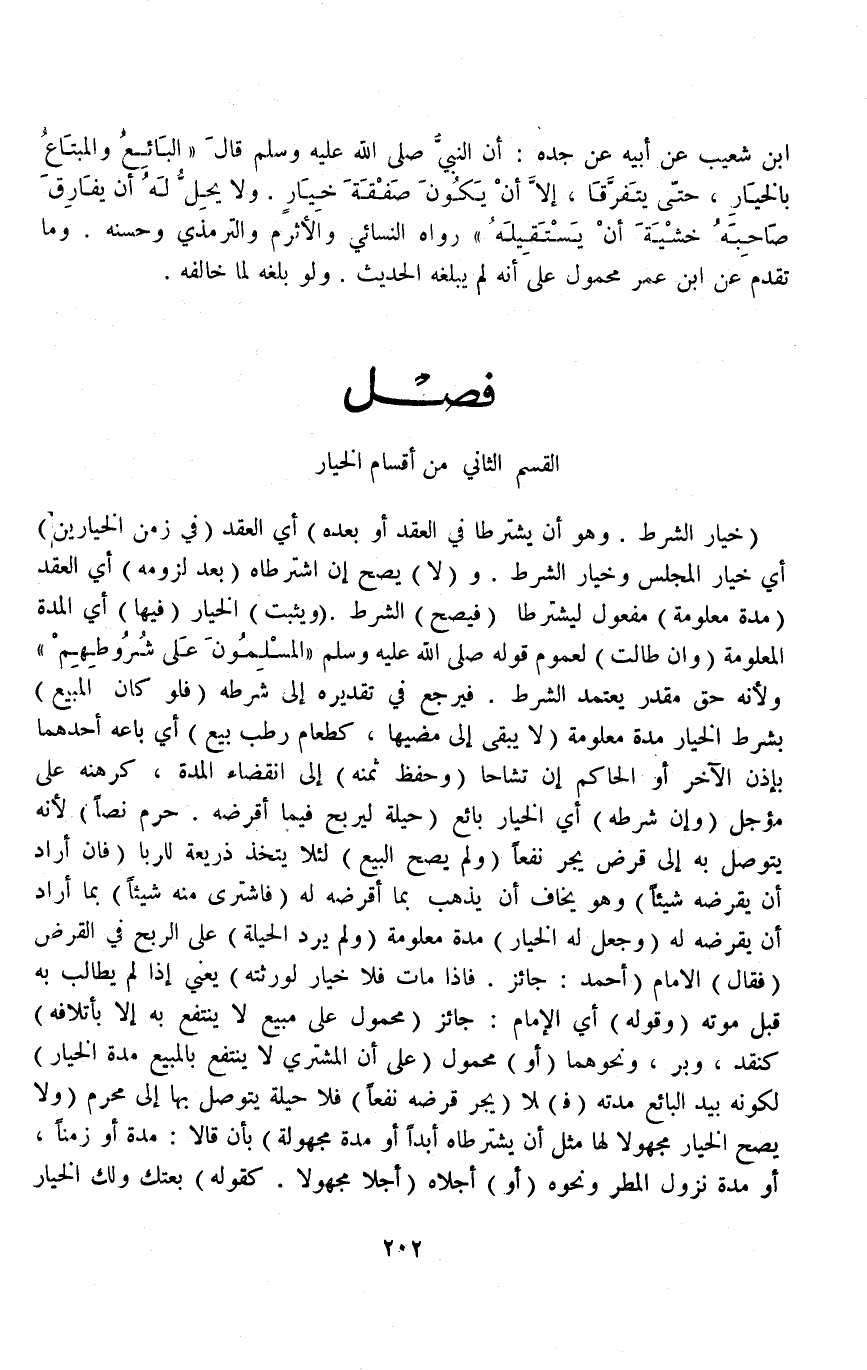 ابن شعيب عن أبيه عن جده : أن النبيَّ صلى الله عليه وسلم قالَ « البَائِعُ والمبتَاعُ
بالخيَارِ ، حتّى يتَفرَّقَا ، إلاَّ أنْ يَكُونَ صَفْقَةَ خيَارٍ . ولا يحلُّ لَهُ أن يفَارِقَ
صَاحِبَهُ خشْيَةَ أنْ يَسْتَقِيلَهُ » رواه النسائي والأثرم والترمذي وحسنه . وما
تقدم عن ابن عمر محمول على أنه لم يبلغه الحديث . ولو بلغه لما خالفه .
فصْل
القسم الثاني من أقسام الخيار
( خيار الشرط . وهو أن يشترطا في العقد أو بعده ) أي العقد ( في زمن الخيارين )
أي خيار المجلس وخيار الشرط . و ( لا ) يصح إن اشترطاه ( بعد لزومه ) أي العقد
( مدة معلومة ) مفعول ليشترطا ( فيصح ) الشرط .( ويثبت ) الخيار ( فيها ) أي المدة
المعلومة ( وان طالت ) لعموم قوله صلى الله عليه وسلم «المسْلِمُونَ عَلَى شُرُوطِهِمْ »
ولأنه حق مقدر يعتمد الشرط . فيرجع في تقديره إلى شرطه ( فلو كان المبيع )
بشرط الخيار مدة معلومة ( لا يبقى إلى مضيها ، كطعام رطب بيع ) أي باعه أحدهما
بإذن الآخر أو الحاكم إن تشاحا ( وحفظ ثمنه ) إلى انقضاء المدة ، كرهنه على
مؤجل ( وإن شرطه ) أي الخيار بائع ( حيلة ليربح فيما أقرضه . حرم نصاً ) لأنه
يتوصل به إلى قرض يجر نفعاً ( ولم يصح البيع ) لئلا يتخذ ذريعة للربا ( فان أراد
أن يقرضه شيئاً ) وهو يخاف أن يذهب بما أقرضه له ( فاشترى منه شيئاً ) بما أراد
أن يقرضه له ( وجعل له الخيار ) مدة معلومة ( ولم يرد الحيلة ) على الربح في القرض
( فقال ) الامام ( أحمد : جائز . فاذا مات فلا خيار لورثته ) يعني إذا لم يطالب به
قبل موته ( وقوله ) أي الإمام : جائز ( محمول على مبيع لا ينتفع به إلا بأتلافه )
كنقد ، وبر ، ونحوهما ( أو ) محمول ( على أن المشتري لا ينتفع بالمبيع مدة الخيار )
لكونه بيد البائع مدته ( ف ) لا ( يجر قرضه نفعاً ) فلا حيلة يتوصل بها إلى محرم ( ولا
يصح الخيار مجهولا لها مثل أن يشترطاه أبداً أو مدة مجهولة ) بأن قالا : مدة أو زمناً ،
أو مدة نزول المطر ونحوه ( أو ) أجلاه ( أجلا مجهولا . كقوله ) بعتك ولك الخيار
٢٠٢